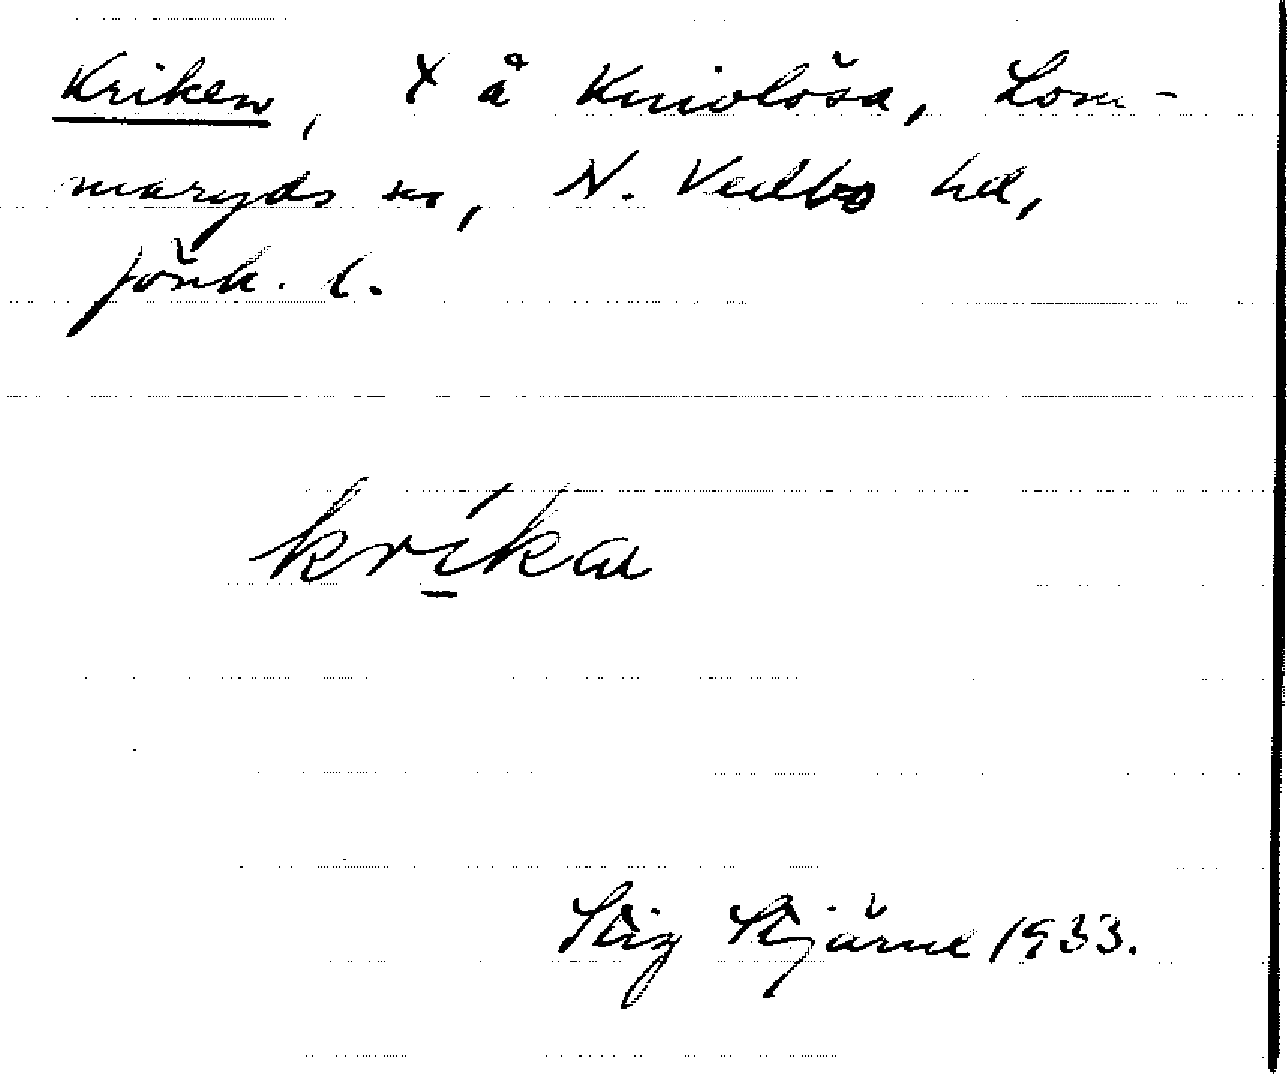 Kriken, x å Kniolösa, Lom-
maryds sn, N. Vedbo hd,
Jönk. l.
kríka
Stig Stjärne 1933.